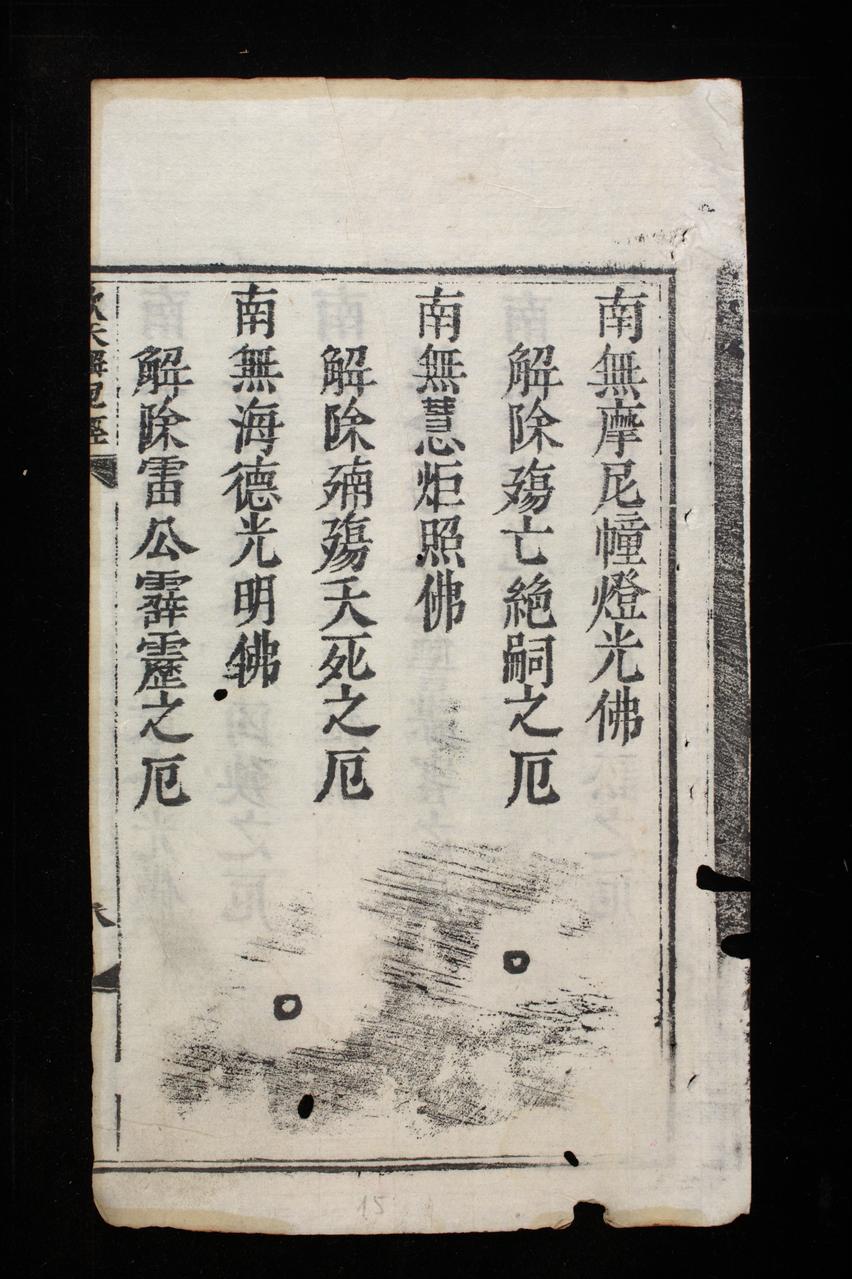 南無摩尼幢燈光佛
解除殤亡絕嗣之厄
南無慧炬照佛
解除殤夭死之厄
南無海德光明佛
解除雷公霹靂之厄
天解
經
12